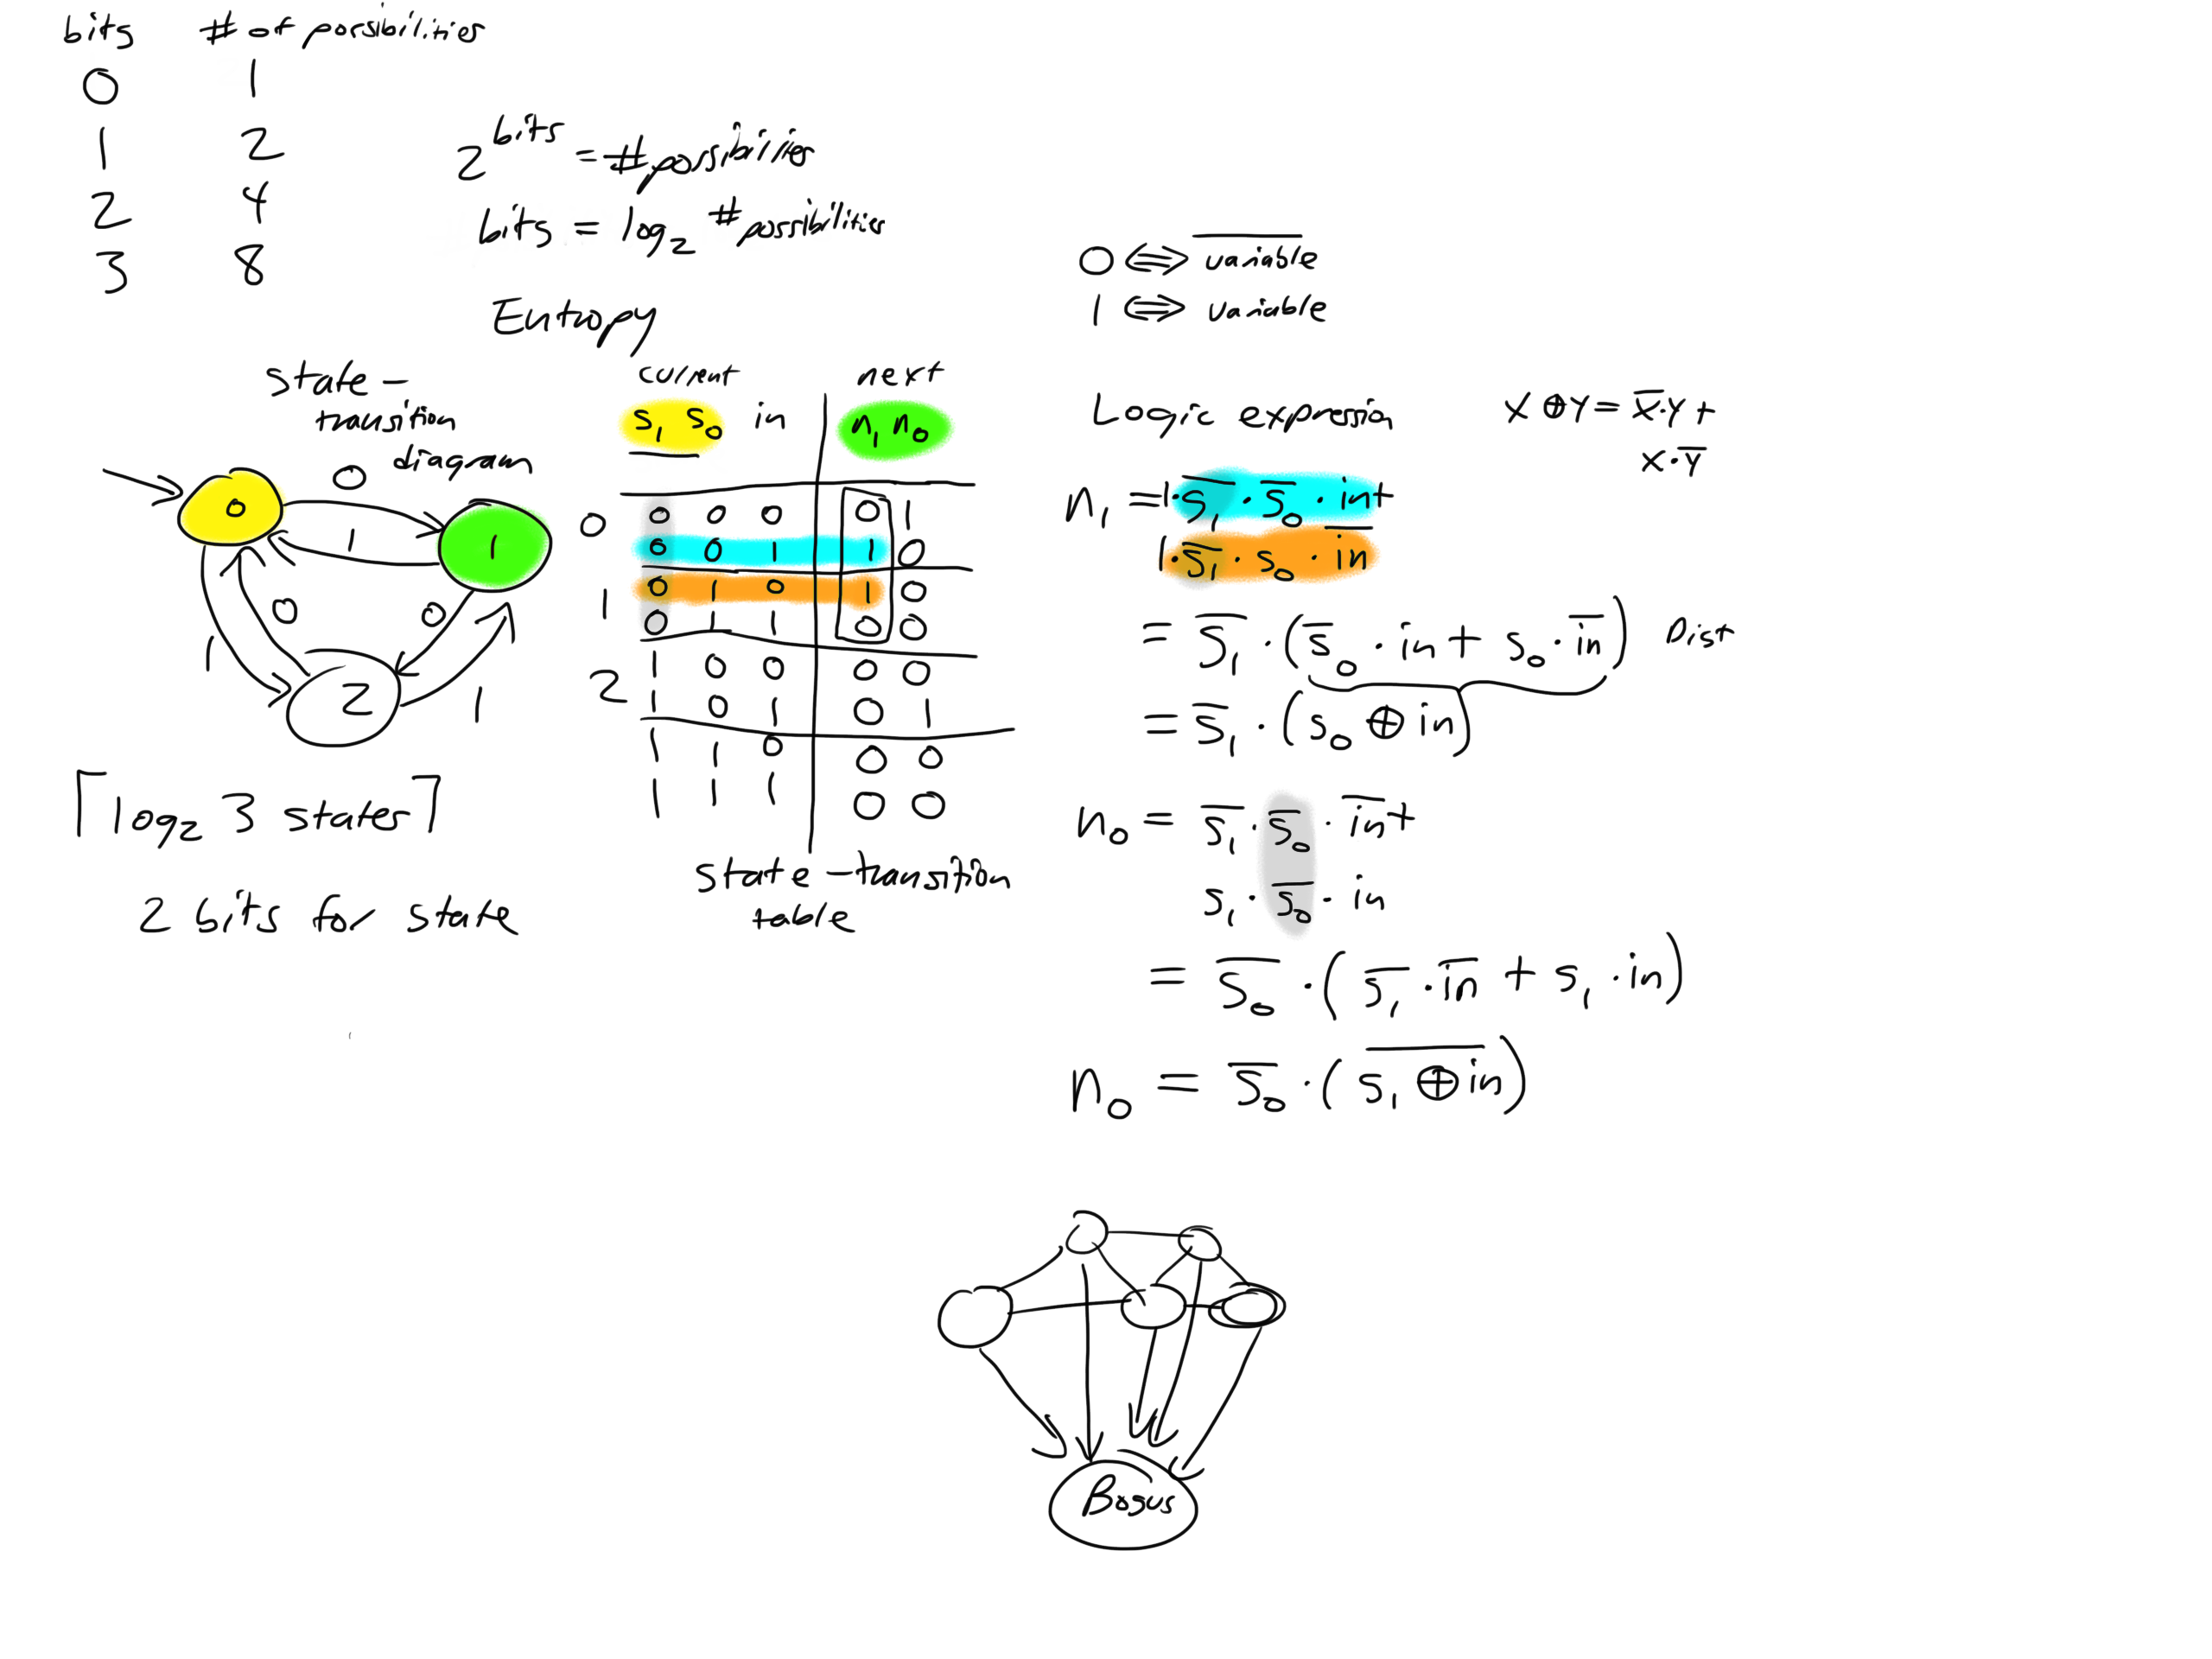 bits # of possibilities
0 1
1 2
2 4
3 8
2^bits = # possibilities
bits = log₂ # possibilities
Entropy
state-
transition
diagram
0
0
1
1
1
0
0
2
1
⌈log₂ 3 states⌉
2 bits for state
current next
s₁ s₀ in n₁ n₀
0 0 0 0 0 1
0 0 1 1 0
1 0 1 0 1 0
0 1 1 0 0
2 1 0 0 0 0
1 0 1 0 1
1 1 0 0 0
1 1 1 0 0
state-transition
table
0 ⇔ v̅a̅r̅i̅a̅b̅l̅e̅
1 ⇔ variable
Logic expression
x ⊕ y = x̅·y +
x·y̅
n₁ = 1·s̅₁·s̅₀·in +
1·s̅₁·s₀·i̅n̅
= s̅₁·(s̅₀·in + s₀·i̅n̅) Dist
= s̅₁·(s₀ ⊕ in)
n₀ = s̅₁·s̅₀·i̅n̅ +
s₁·s̅₀·in
= s̅₀·(s̅₁·i̅n̅ + s₁·in)
n₀ = s̅₀·(s̅₁̅ ̅⊕̅ ̅i̅n̅)
Bogus